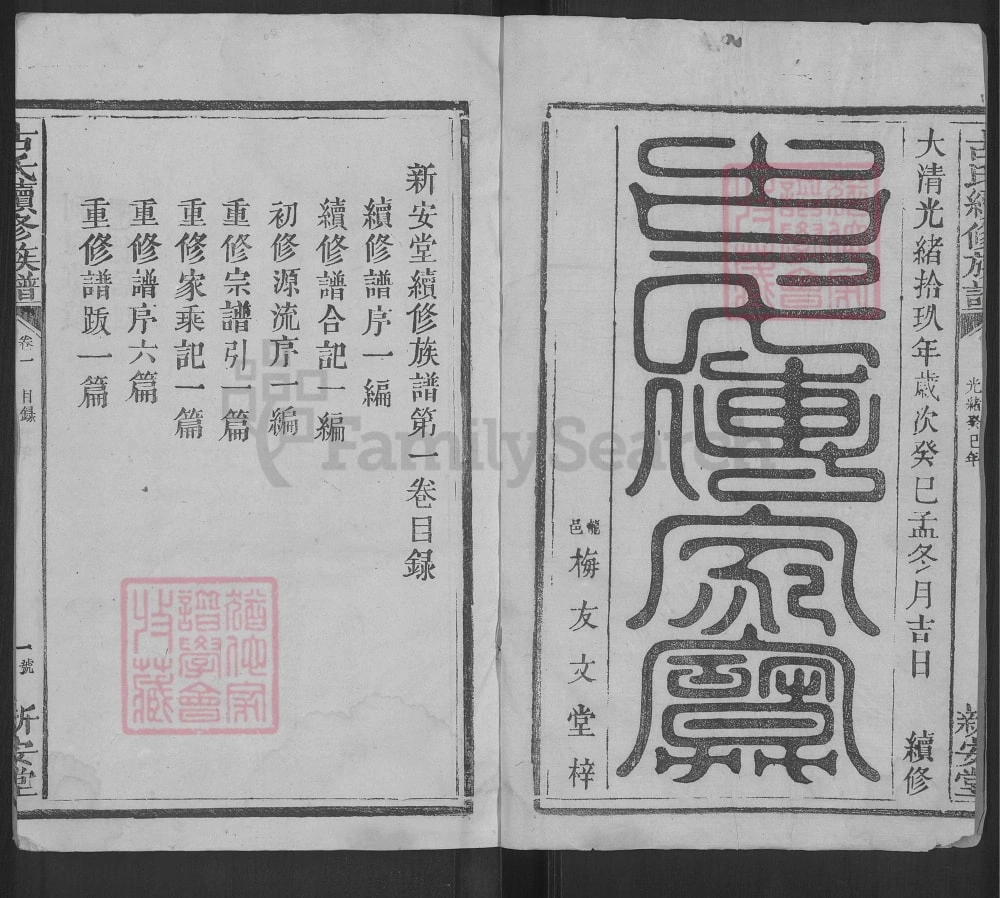 古氏續修族譜
光緒癸巳年
新安堂
大清光緒拾玖年歲次癸巳孟冬月吉日
續修
傳家寶
龍邑梅友文堂梓
新安堂續修族譜第一卷目録
續修譜序一編
續修譜合記一編
初修源流序一編
重修宗譜引一篇
重修家乘記一篇
重修譜序六篇
重修譜跋一篇
古氏續修族譜
卷一
目録
一號
新安堂
猶他家
譜學會
收藏
FamilySearch